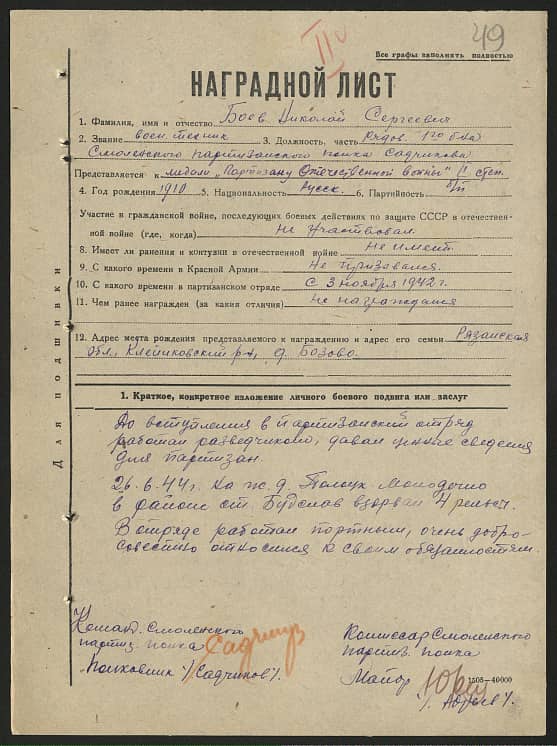 49
II
Все графы заполнять полностью
НАГРАДНОЙ ЛИСТ
1. Фамилия, имя и отчество Боев Николай Сергеевич
2. Звание воен. техник 3. Должность, часть рядов. 1го б-на
Смоленского партизанского полка Садчикова
Представляется к медали "Партизану Отечественной войны" II степ.
4. Год рождения 1910 5. Национальность Русск. 6. Партийность б/п
Участие в гражданской войне, последующих боевых действиях по защите СССР в отечествен-
ной войне (где, когда) Не участвовал.
8. Имеет ли ранения и контузии в отечественной войне Не имеет.
9. С какого времени в Красной Армии Не призывался.
10. С какого времени в партизанском отряде С 3 ноября 1942 г.
11. Чем ранее награжден (за какия отличия) Не награждался
12. Адрес места рождения представляемого к награждению и адрес его семьи Рязанская
обл., Клепиковский р-н, д. Бозово.
Для подшивки
1. Краткое, конкретное изложение личного боевого подвига или заслуг
До вступления в партизанский отряд
работал разведчиком, давал ценные сведения
для партизан.
26.6.44г. на ж.д. Полоцк-Молодечно
в районе ст. Будслав взорвал 4 рельсы.
В отряде работал портным, очень добро-
совестно относился к своим обязанностям.
Команд. Смоленского
партиз. полка
Полковник /Садчиков/.
Комиссар Смоленского
партиз. полка
Майор
1505-40000